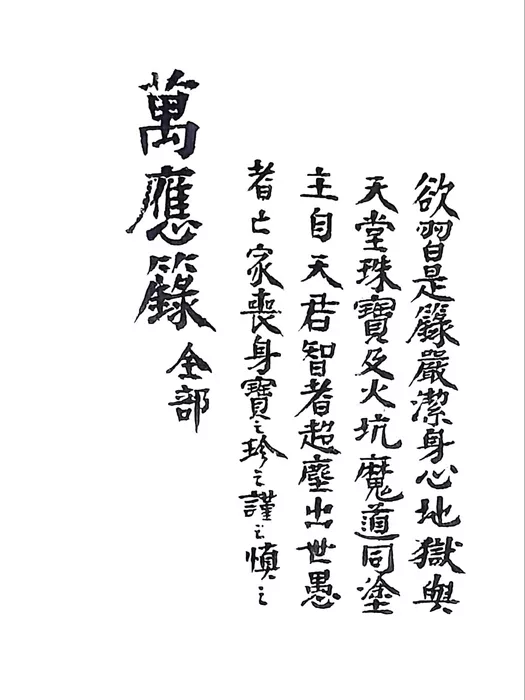 欲習是籙嚴潔身心地獄與
天堂珠寶及火坑魔道同塗
主自天君智者超塵出世愚
者亡家喪身寶之珍之謹之慎之
萬應籙
全部